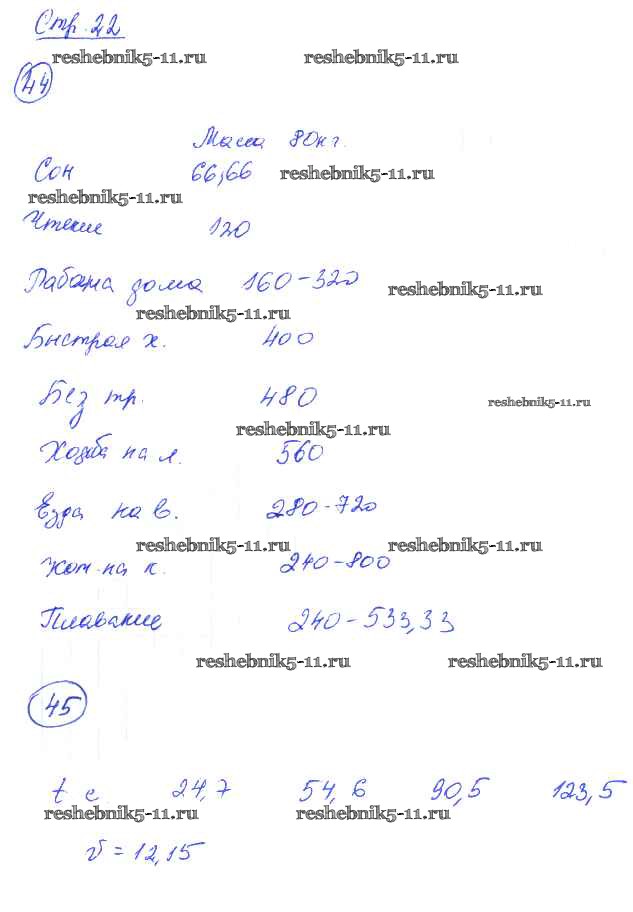 Стр. 22
reshebnik5-11.ru reshebnik5-11.ru
44
Масса 80кг.
Сон 66,66 reshebnik5-11.ru
reshebnik5-11.ru
Чтение 120
Работа дома 160-320 reshebnik5-11.ru
reshebnik5-11.ru
Быстрая х. 400
Без тр. 480 reshebnik5-11.ru
reshebnik5-11.ru
Ходьба на л. 560
Езда на в. 280-720
reshebnik5-11.ru reshebnik5-11.ru
Кат. на к. 240-800
Плавание 240-533,33
reshebnik5-11.ru reshebnik5-11.ru
45
t c 24,7 54,6 90,5 123,5
reshebnik5-11.ru reshebnik5-11.ru
v = 12,15